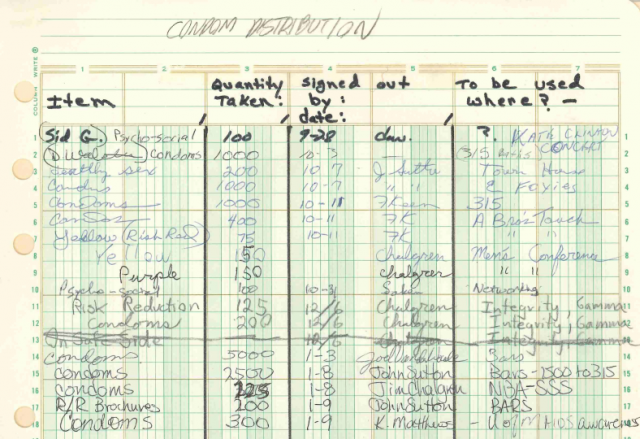 CONDOM DISTRIBUTION
COLUMN WRITE
1 2 3 4 5 6 7
Item Quantity Taken: signed by: date: out To be used where? —
1 Sid G. Psycho-social 100 9-28 ?. KATE CLINTON CONCERT 1
2 Condoms 1000 10-3 — (315 2
3 sex 200 10-7 J Sutton Town House 3
4 Condoms 1000 10-7 " " & Foxies 4
5 Condoms 1000 10-11 315 5
6 400 10-11 FK A Bro's Touch 6
7 Yellow (Risk Red) 75 10-11 FK " " 7
8 Yellow 150 Chalgren Men's Conference 8
9 Purple 150 chalgren " " 9
10 Psycho-social 100 10-31 Networking 10
11 Risk Reduction 125 12/6 Chalgren Integrity, Gamma 11
12 Condoms 200 12/6 Chalgren Integrity, Gamma 12
13 On Safe Side 12/6 Chalgren Integrity, Gamma 13
14 Condoms 5000 1-3 Bars 14
15 Condoms 2500 1-8 John Sutton Bars - 1500 to 315 15
16 Condoms 225 1-8 Jim Chalgren NBA-SSS 16
17 R/R Brochures 200 1-9 John Sutton BARS 17
18 Condoms 300 1-9 K. Matthews - U of M AIDS awareness 18